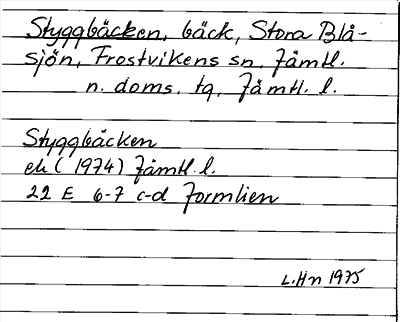 Styggbäcken, bäck, Stora Blå-
sjön, Frostvikens sn, Jämtl.
n. doms. tg, Jämtl. l.
Styggbäcken
ek (1974) Jämtl. l.
22 E 6-7 c-d Jormlien
L.Hn 1975